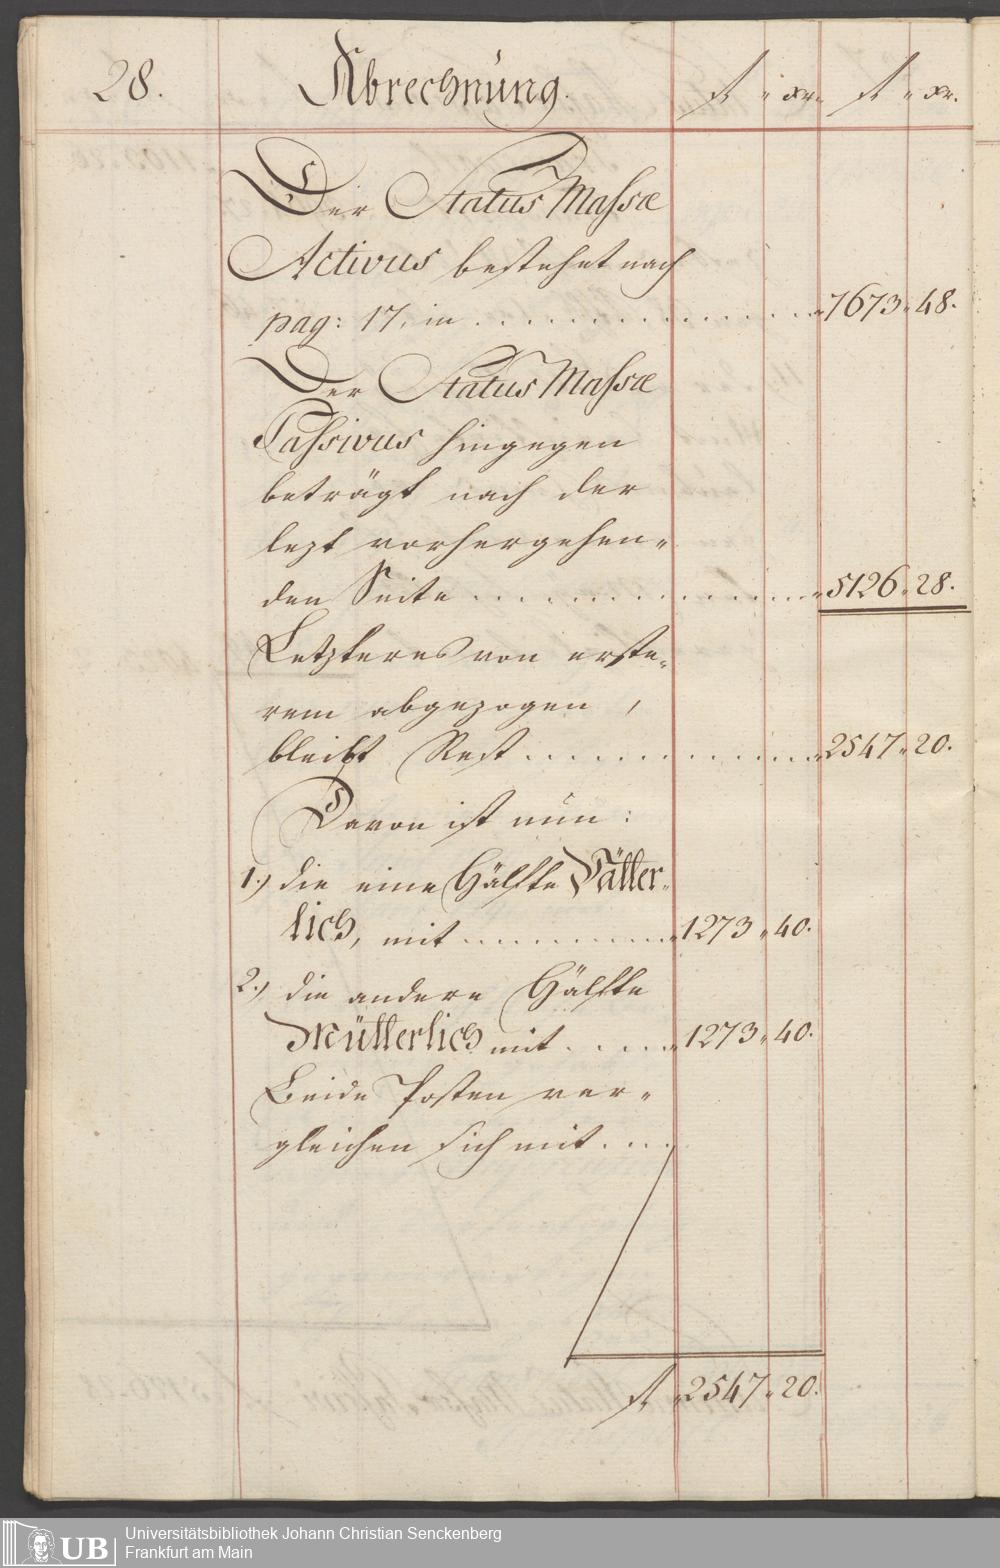 28. Abrechnung. fl „ xr. fl „ xr.
Der Status Massæ
Activus bestehet nach
pag: 17. in . . . . . . . . . . . . . „7673„48.
Der Status Massæ
Passivus hingegen
beträgt nach der
lezt vorhergehen„
den Seite . . . . . . . . . . . . . „5126„28.
Letzteres von erste„
rem abgezogen,
bleibt Rest . . . . . . . . . . . . „2547„20.
Davon ist nun:
1.) die eine Hälfte Vätter„
lich, mit . . . . . . . . . . „1273„40.
2.) die andere Hälfte
Mütterlich mit . . . . . „1273„40.
Beide Posten ver„
gleichen sich mit . . . .
fl „2547„20.
UB
Universitätsbibliothek Johann Christian Senckenberg
Frankfurt am Main